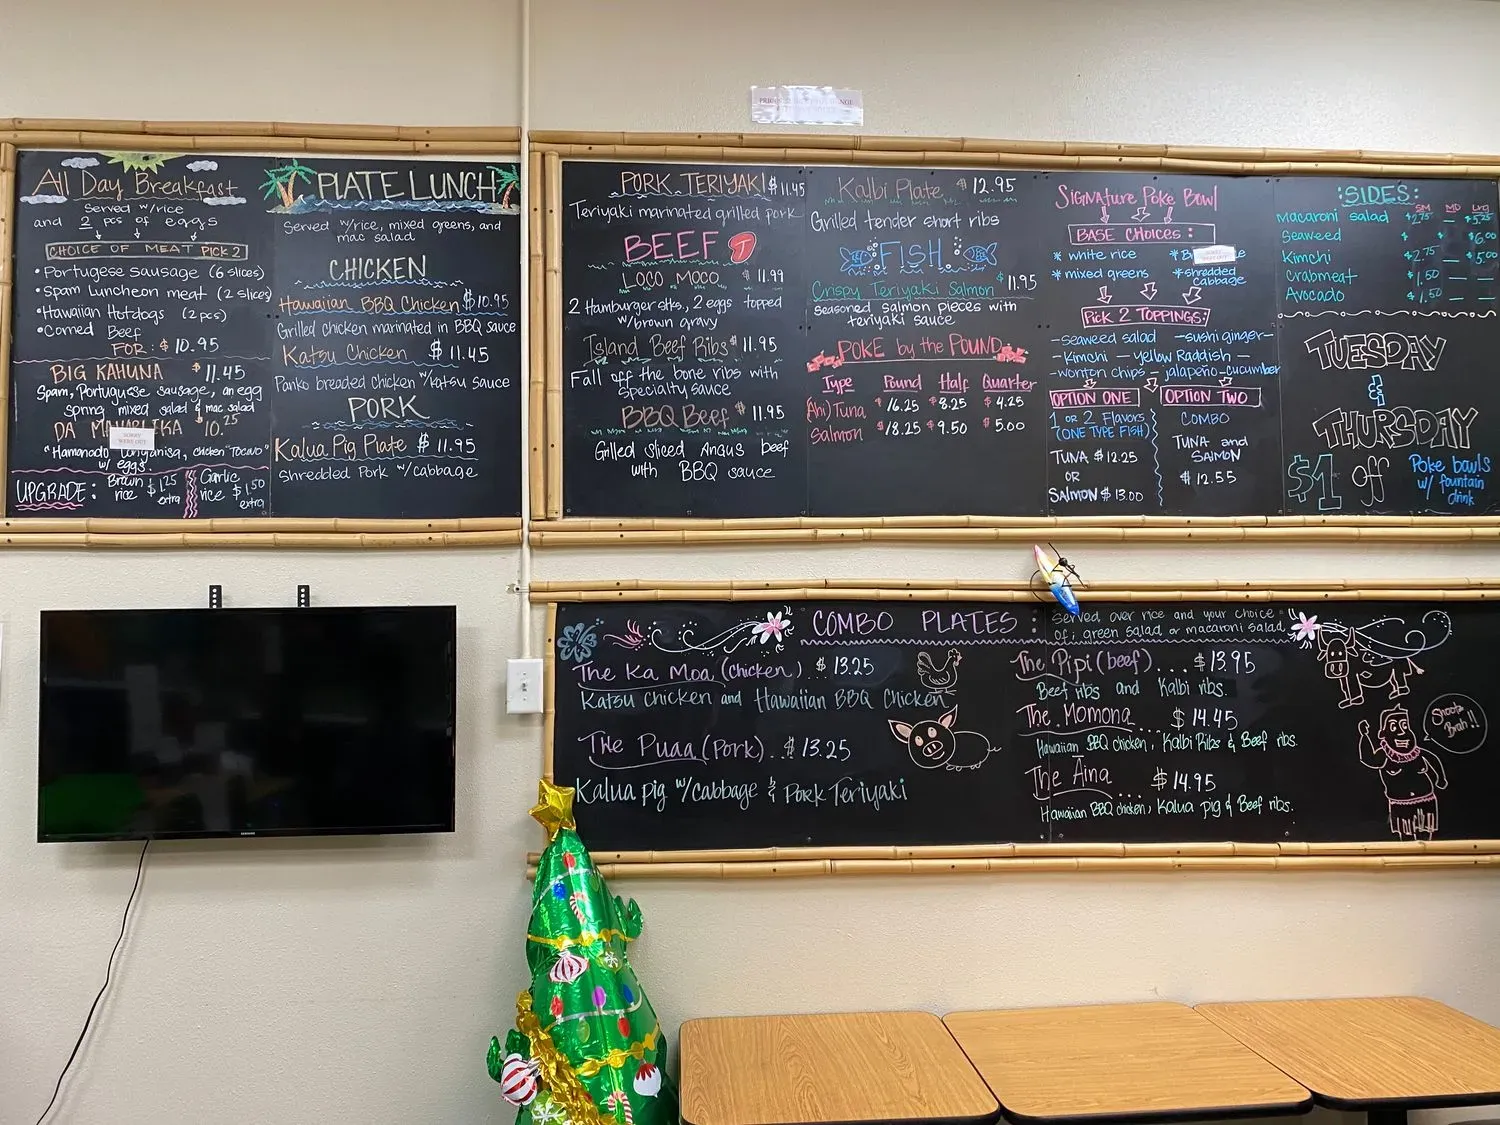 PRICES SUBJECT TO CHANGE
All Day Breakfast
Served w/rice
and 2 pcs of eggs
CHOICE OF MEAT PICK 2
• Portugese sausage (6 slices)
• Spam Luncheon meat (2 slices)
• Hawaiian Hotdogs (2pcs)
• Corned Beef
FOR: $10.95
BIG KAHUNA $11.45
Spam, Portuguese sausage, an egg
spring mixed salad & mac salad
DA $10.25
SORRY
WE'RE OUT
"Hamonado Longanisa, chicken "Tocino"
w/ eggs.
UPGRADE: Brown rice $1.25 extra
Garlic rice $1.50 extra
PLATE LUNCH
Served w/rice, mixed greens, and
mac salad
CHICKEN
Hawaiian BBQ Chicken $10.95
Grilled chicken marinated in BBQ sauce
Katsu Chicken $11.45
Panko breaded chicken w/katsu sauce
PORK
Kalua Pig Plate $11.95
Shredded Pork w/cabbage
PORK TERIYAKI $11.45
Teriyaki marinated grilled pork
BEEF
LOCO MOCO $11.99
2 Hamburger stks., 2 eggs topped
w/brown gravy
Island Beef Ribs $11.95
Fall off the bone ribs with
specialty sauce
BBQ Beef $11.95
Grilled sliced Angus beef
with BBQ sauce
Kalbi Plate $12.95
Grilled tender short ribs
FISH
Crispy Teriyaki Salmon $11.95
seasoned salmon pieces with
teriyaki sauce
POKE by the POUND
Type Pound Half Quarter
(Ahi) Tuna $16.25 $8.25 $4.25
Salmon $18.25 $9.50 $5.00
Signature Poke Bowl
BASE CHOICES:
* white rice
* mixed greens
SORRY
WE'RE OUT
* shredded
cabbage
Pick 2 TOPPINGS:
- seaweed salad - sushi ginger -
- Kimchi - yellow Raddish -
- wonton chips - jalapeño - cucumber
OPTION ONE
1 or 2 Flavors
(ONE TYPE FISH)
TUNA $12.25
OR
SALMON $13.00
OPTION TWO
COMBO
TUNA and
SALMON
$12.55
:SIDES:
SM MD Lrg
Macaroni salad $2.75 $5.25
Seaweed $ $ $6.00
Kimchi $2.75 — $5.00
Crabmeat $1.50 — —
Avocado $1.50 — —
TUESDAY
&
THURSDAY
$1 off
Poke bowls
w/ fountain
drink
COMBO PLATES:
Served over rice and your choice
of; green salad or macaroni salad
The Ka Moa (chicken) $13.25
Katsu chicken and Hawaiian BBQ Chicken
The Puaa (Pork) .. $13.25
Kalua pig w/cabbage & Pork Teriyaki
The Pipi (beef) ... $13.95
Beef ribs and Kalbi ribs.
The Momona .... $14.45
Hawaiian BBQ chicken, Kalbi Ribs & Beef ribs.
The Āina .... $14.95
Hawaiian BBQ chicken, Kalua pig & Beef ribs.
Shootz
Brah!!
SAMSUNG